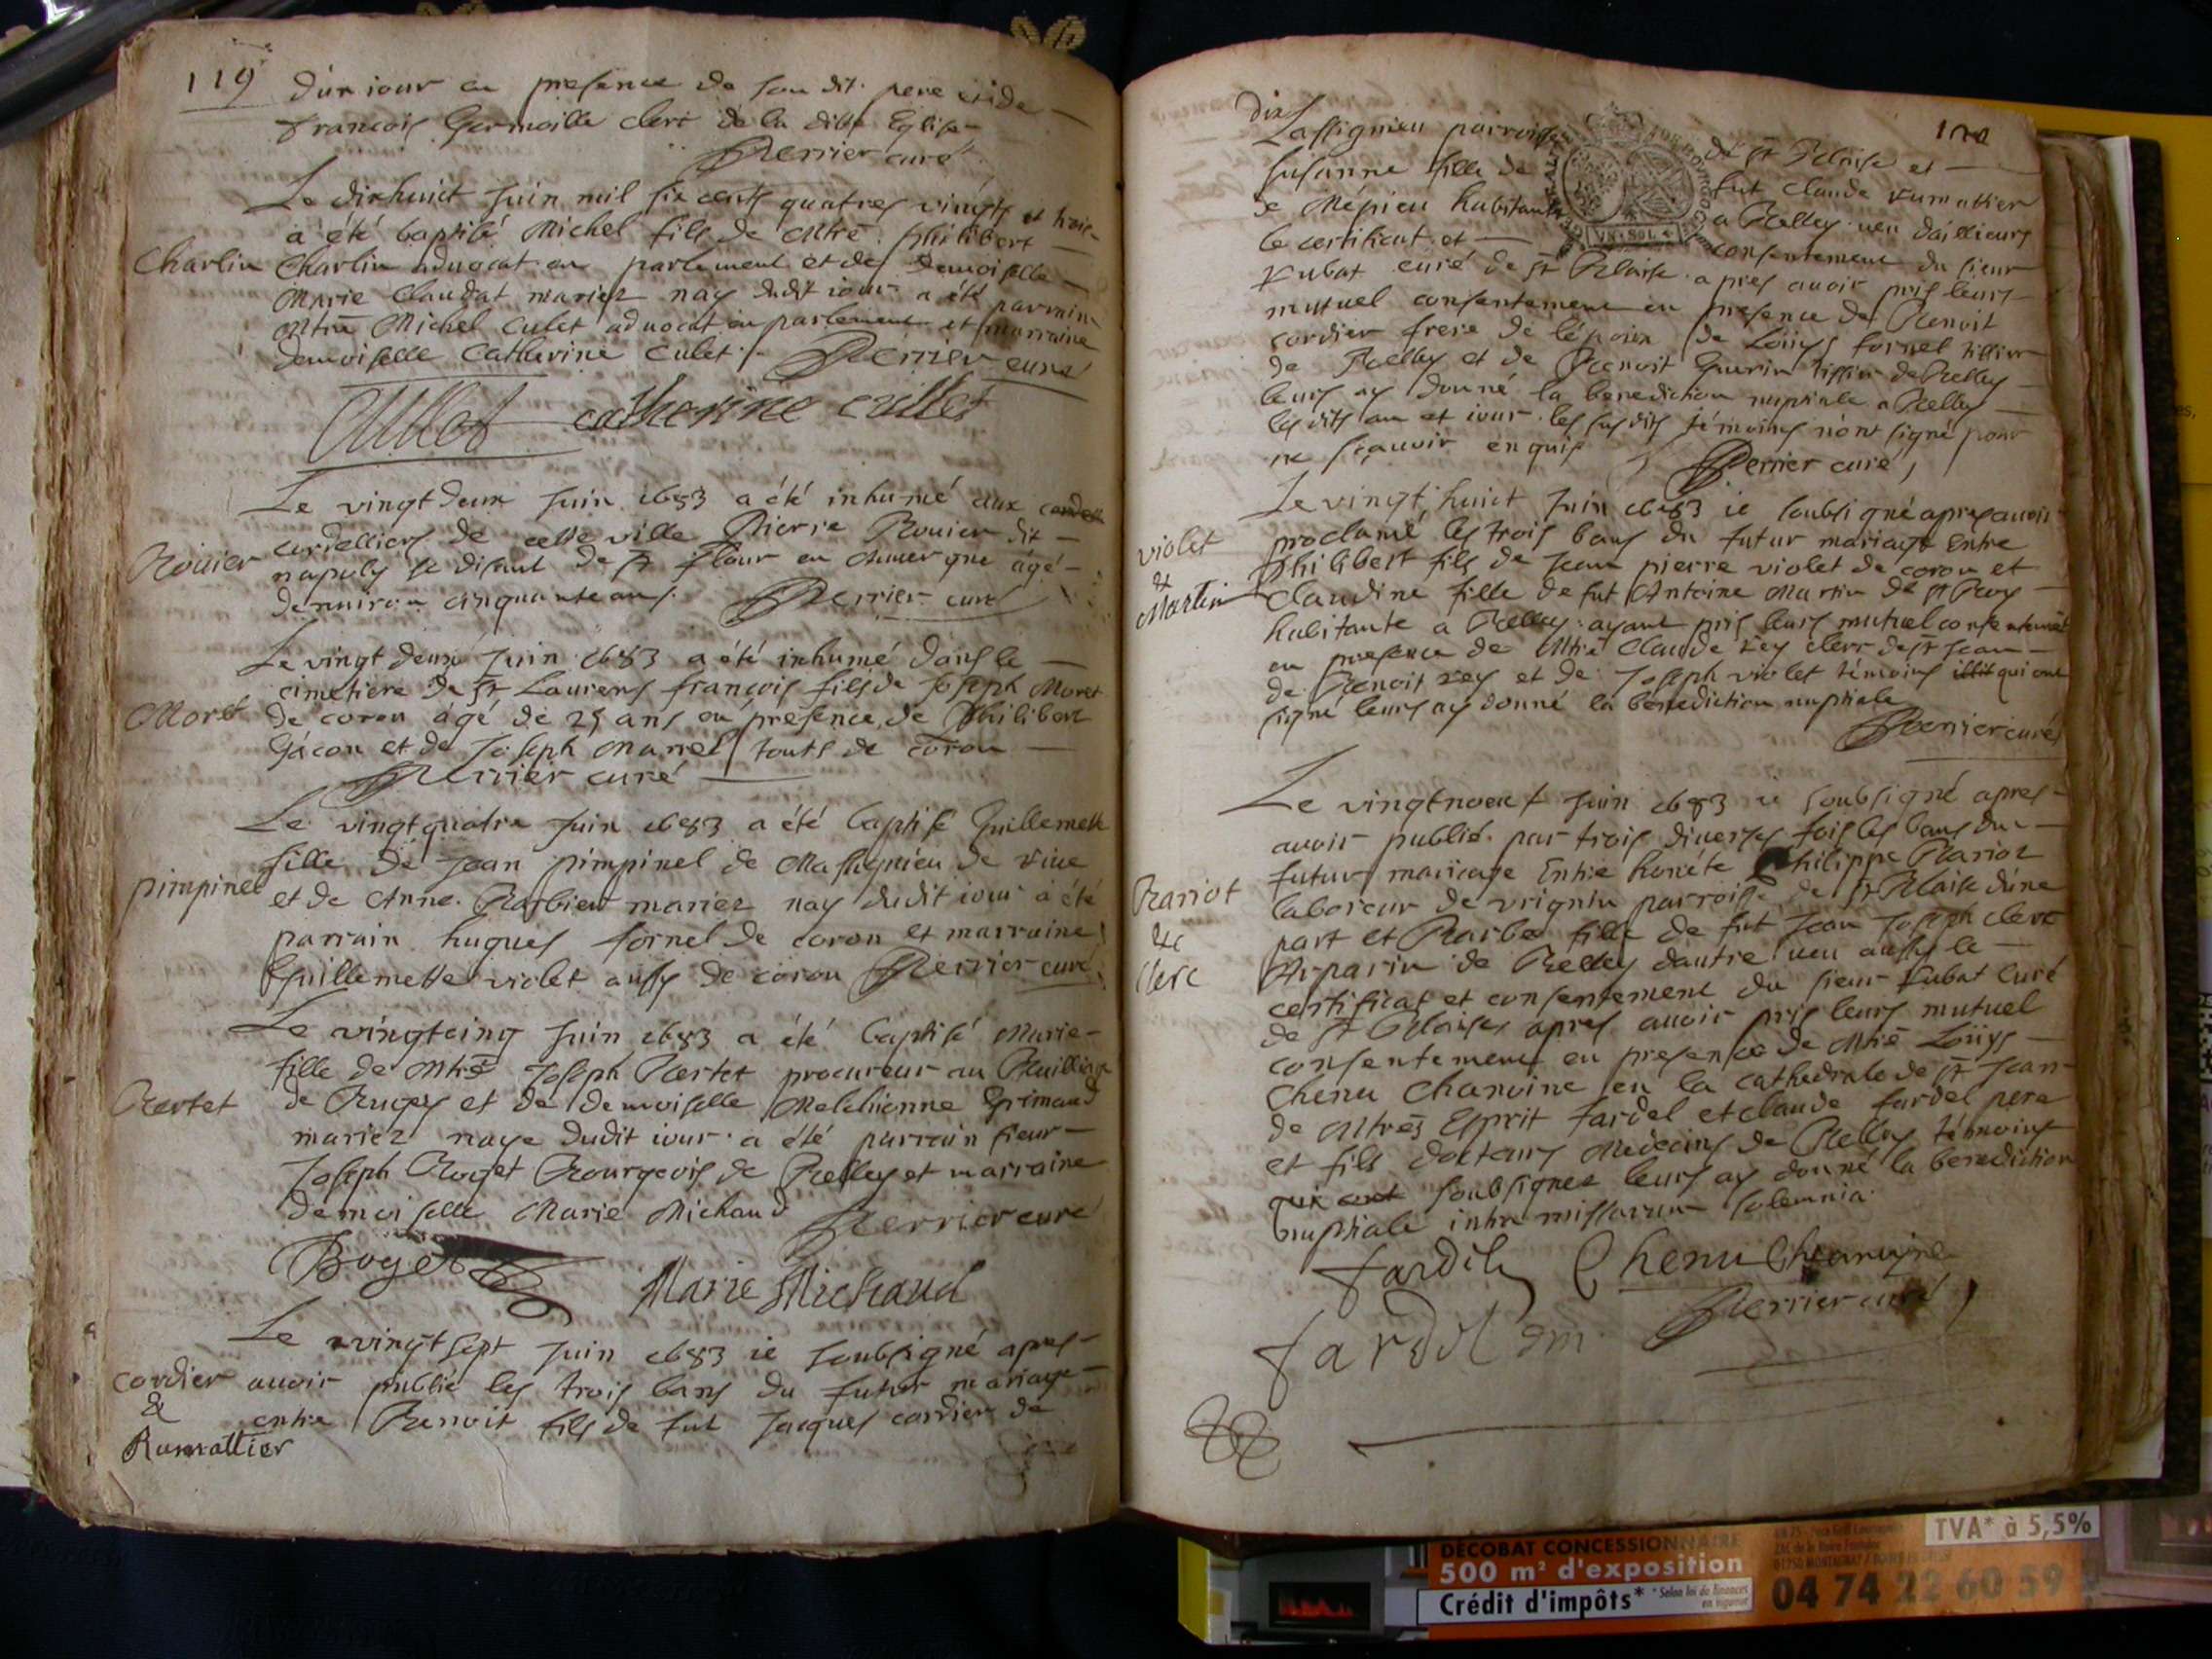 119
d'un iour en presence de son dit pere et de
francois Germoille clerc de la ditte Eglise
Perrier curé
Le dixhuict Juin mil six cents quatres vingts et trois
a été baptisé Michel fils de Mtre Philibert
Charlin
Charlin aduocat en parlement et de demoiselle
Marie Claudat mariez nay dudit iour a été parrain
Mtre Michel Culet aduocat en parlement et marraine
demoiselle Catherine Culet Perrier curé
Cullet catherine cullet
Le vingt deux Juin 1683 a été inhumé aux
cordelliers de cette ville Pierre Rouier dit
Rouier
napuly se disant de St flour en Auuergne âgé
denuiron cinquante ans. Perrier curé
Le vingt deux Juin 1683 a été inhumé dans le
cimetiere de St Laurens françois fils de Joseph Moret
Moret
de coron âgé de 25 ans en presence de Philibert
Gacon et de Joseph Marrel touts de coron
Perrier curé
Le vingtquatre Juin 1683 a été baptisé Guillemette
fille de Jean pimpinel de Massignieu de riue
pimpinel
et de Anne Barbier mariez nay dudit iour a été
parrain hugues fornel de coron et marraine
Guillemette violet aussy de coron Perrier curé
Le vingtcinq Juin 1683 a été baptisé Marie
fille de Mtre Joseph Bertet procureur au Bailliage
Bertet
de Bugey et de demoiselle Melchionne Grimaud
mariez naye dudit iour a été parrain sieur
Joseph Boget Bourgeois de Belley et marraine
demoiselle Marie Michaud Perrier curé
Boget Marie Michaud
Le vingtsept Juin 1683 ie soubsigné apres
cordier
auoir publié les trois bans du futur mariage
&
entre Benoit fils de fut Jacques cordier de
Rumattier
120
Lassignieu parroisse de St Blaise et
Susanne fille de fut claude rumattier
de Mépieu habitante a Belley ueu d'aillieurs
le certificat et consentement du sieur
rubat curé de St Blaise apres auoir pris leurs
mutuel consentement en presence de Benoit
cordier frere de l'époux de Loüys fornel tissier
de Belley et de Benoit Guerin tissier de Belley
leurs ay donné la benediction nuptiale a Belley
les dits an et iour les susdits témoins n'ont signé pour
ne sçauoir enquis Perrier curé
Le vingt huict Juin 1683 ie soubsigné apres auoir
violet
proclamé les trois bans du futur mariage Entre
&
Philibert fils de Jean pierre violet de coron et
Martin
Claudine fille de fut Antoine Martin de St
habitante a Belley ayant pris leurs mutuel consentement
en presence de Mtre Claude rey clerc de St Jean
de Benoit rey et de Joseph violet témoins qui ont
signé leurs ay donné la benediction nuptiale
Perrier curé
Le vingtneuf Juin 1683 ie soubsigné apres
auoir publié par trois diuerses fois les bans du
futur mariage Entre honéte Philippe Barioz
Barriot
laboreur de vrignin parroisse de St Blaise d'une
&
part et Barbe fille de fut Jean Joseph clerc
clerc
de Belley dautre ueu aussy le
certificat et consentement du sieur rubat Curé
de St Blaise apres auoir pris leurs mutuel
consentement en presence de Mtre Loüys
Chenu Chanoine en la cathedrale de St Jean
de Mtres Esprit fardel et claude fardel pere
et fils docteurs Medecins de Belley témoins
qui ont soubsignez leurs ay donné la benediction
nuptiale intra missarum solemnia
Chenu Chanoyne
Perrier curé
DÉCOBAT CONCESSIONNAIRE
500 m² d'exposition
Crédit d'impôts*
TVA* à 5,5%
04 74 22 60 59